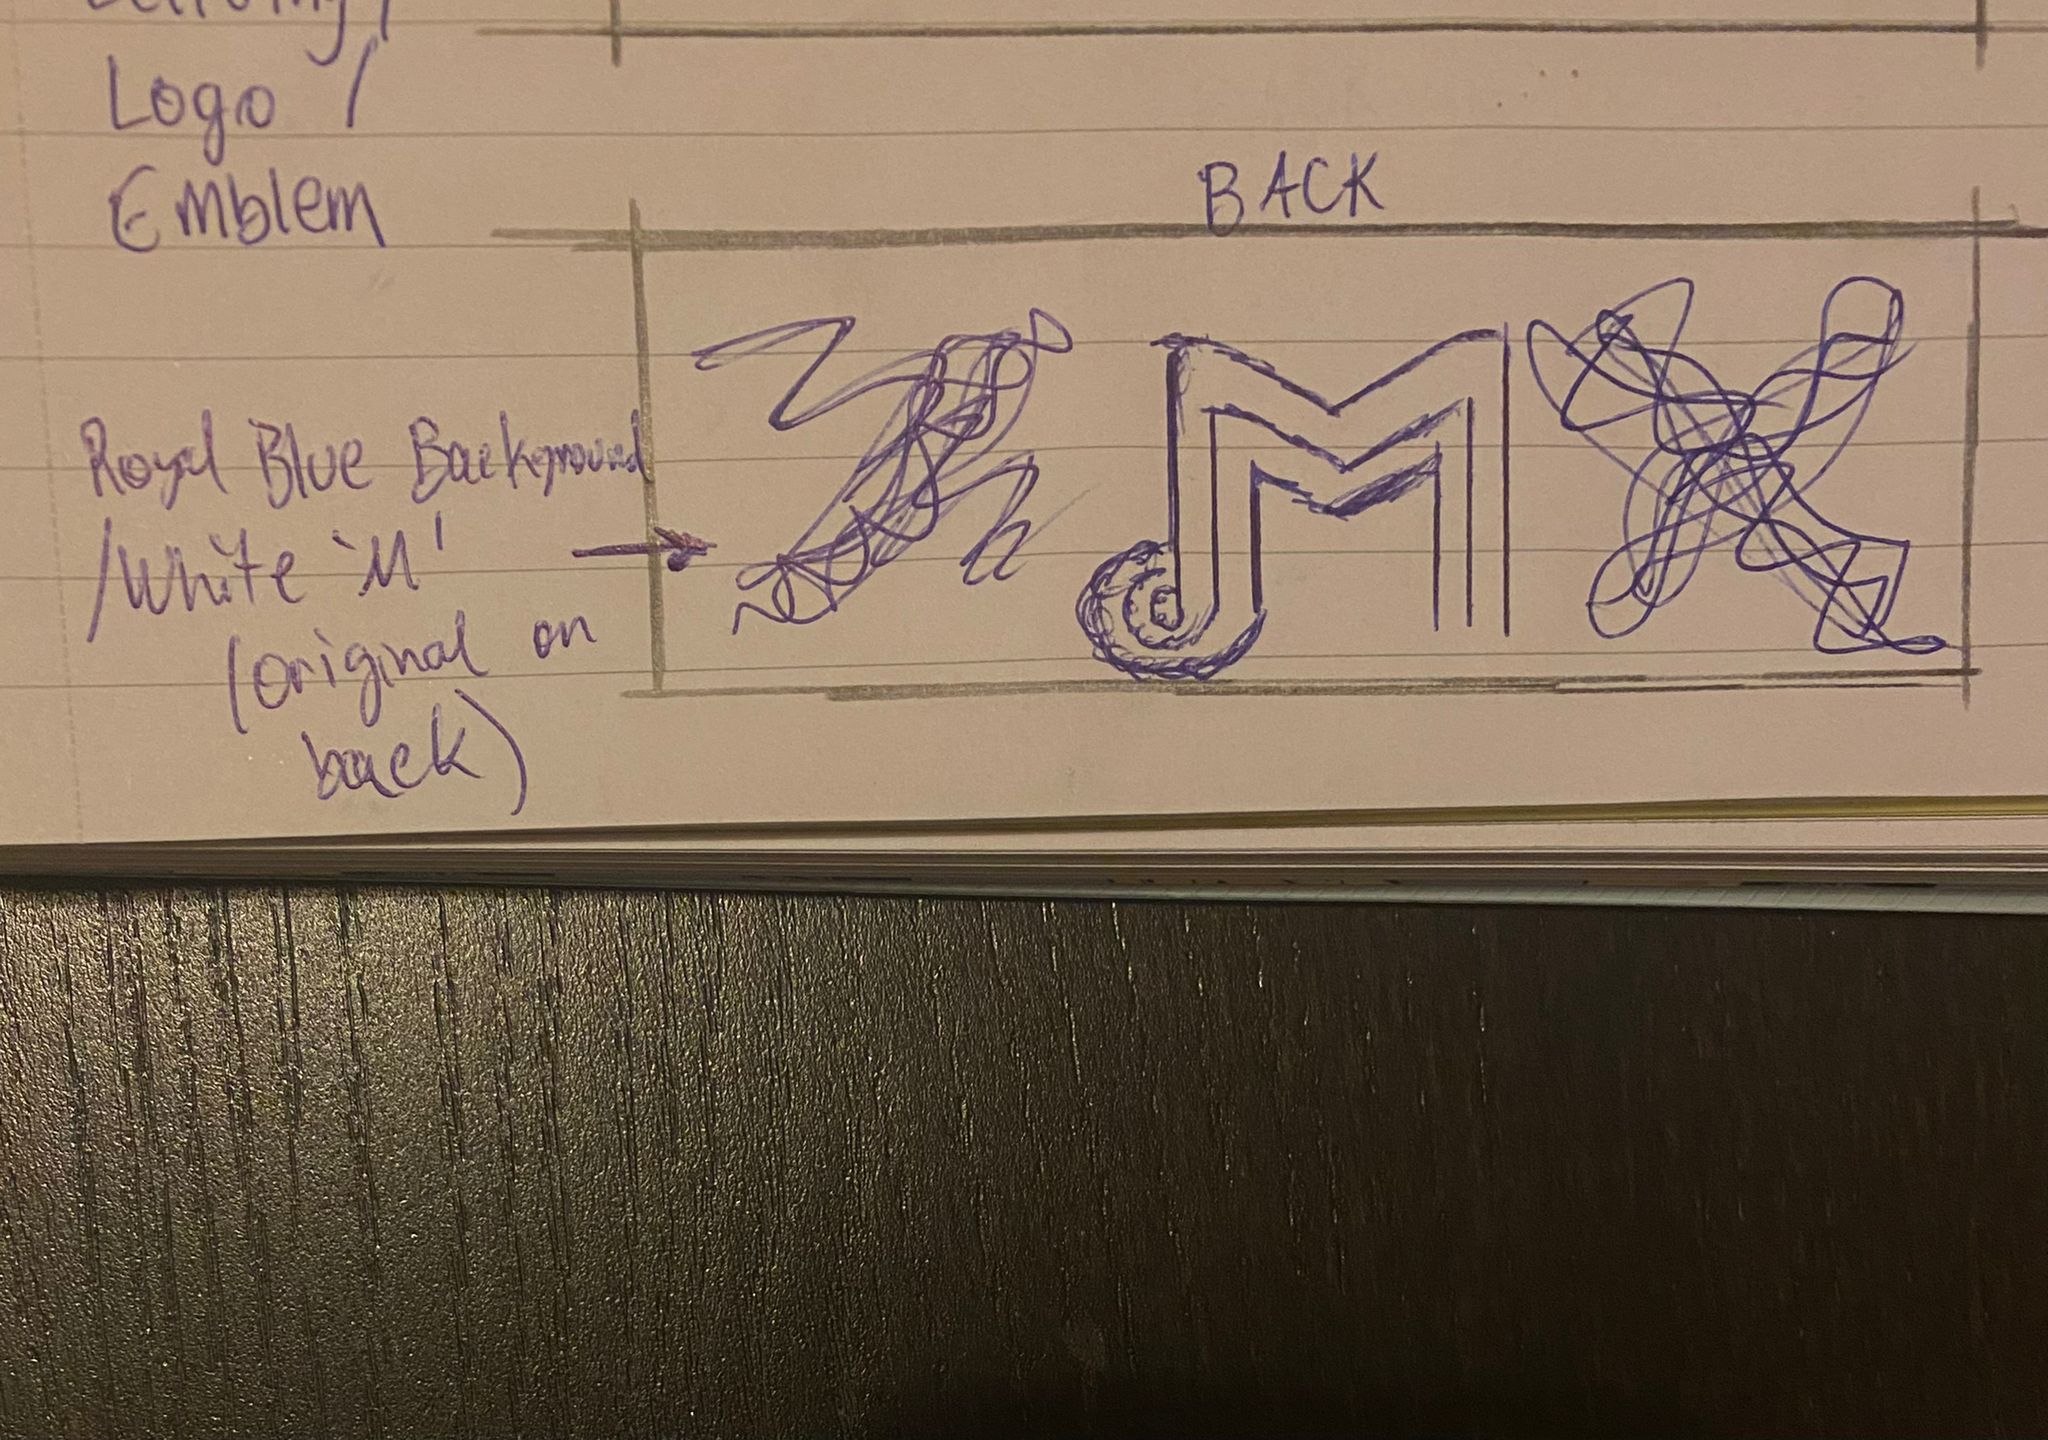 Logo /
Emblem
BACK
Royal Blue Background
/White 'M'
(original on
back)
M